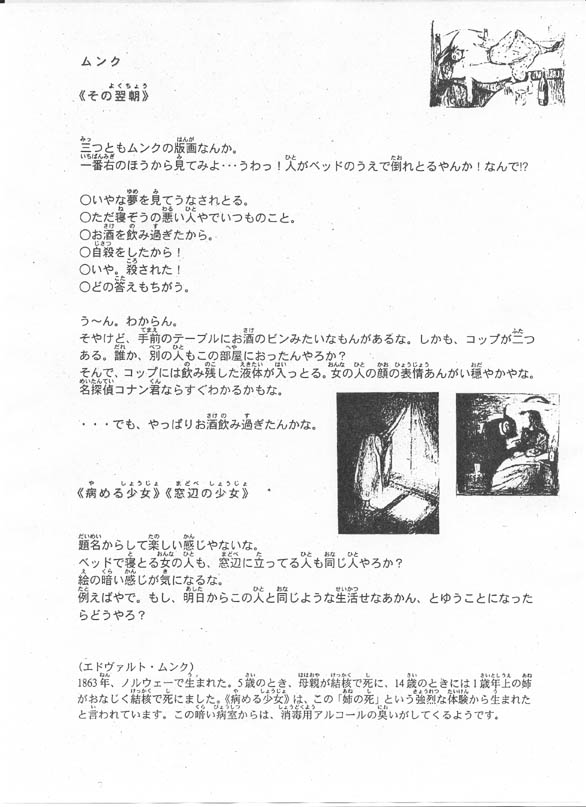 ムンク
《その翌朝》
三つともムンクの版画なんか。
一番右のほうから見てみよ・・・うわっ！人がベッドのうえで倒れとるやんか！なんで!?
○いやな夢を見てうなされとる。
○ただ寝ぞうの悪い人やでいつものこと。
○お酒を飲み過ぎたから。
○自殺をしたから！
○いや。殺された！
○どの答えもちがう。
う～ん。わからん。
そやけど、手前のテーブルにお酒のビンみたいなもんがあるな。しかも、コップが二つ
ある。誰か、別の人もこの部屋におったんやろか？
そんで、コップには飲み残した液体が入っとる。女の人の顔の表情あんがい穏やかやな。
名探偵コナン君ならすぐわかるかもな。
・・・でも、やっぱりお酒飲み過ぎたんかな。
《病める少女》《窓辺の少女》
題名からして楽しい感じやないな。
ベッドで寝とる女の人も、窓辺に立ってる人も同じ人やろか？
絵の暗い感じが気になるな。
例えばやで。もし、明日からこの人と同じような生活せなあかん、とゆうことになった
らどうやろ？
（エドヴァルト・ムンク）
1863年、ノルウェーで生まれた。5歳のとき、母親が結核で死に、14歳のときには1歳年上の姉
がおなじく結核で死にました。《病める少女》は、この「姉の死」という強烈な体験から生まれた
と言われています。この暗い病室からは、消毒用アルコールの臭いがしてくるようです。